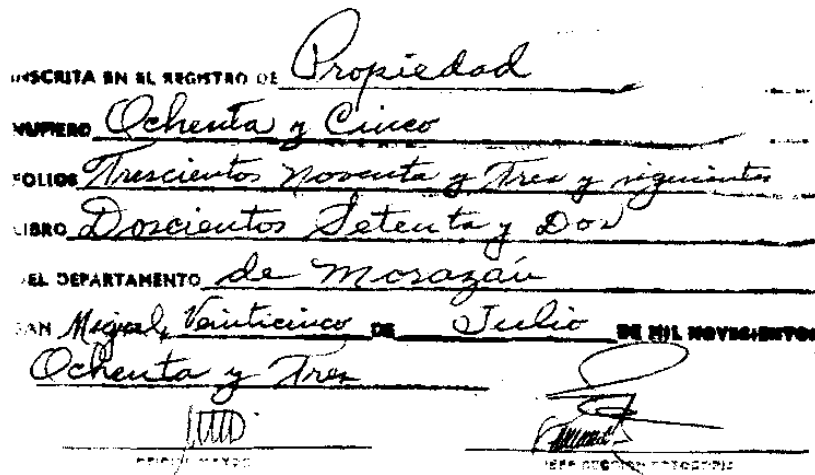 INSCRITA EN EL REGISTRO DE Propiedad
NUMERO Ochenta y Cinco
FOLIOS Trescientos Noventa y Tres y siguientes
LIBRO Doscientos Setenta y Dos
DEL DEPARTAMENTO de Morazán
SAN Miguel, Veinticinco DE Julio DE MIL NOVECIENTOS
Ochenta y Tres
OFICIAL MAYOR JEFE SECCION FOTOCOPIA